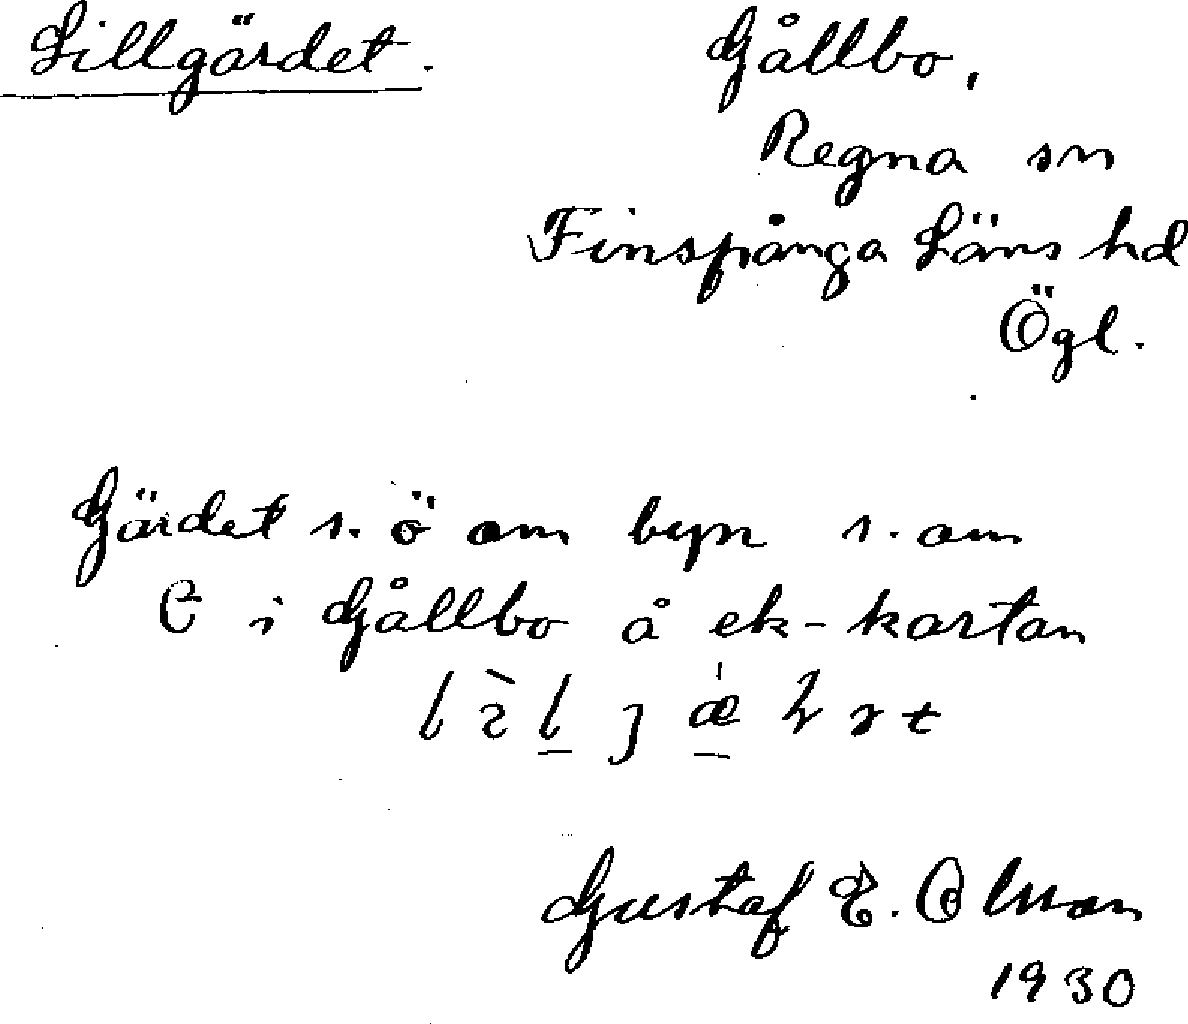 Lillgärdet.
Gållbo,
Regna sn
Finspånga Läns hd
Ögl.
Gärdet s. ö om byn s. om
C i Gållbo å ek-kartan
Gustaf E. Olsson
1930